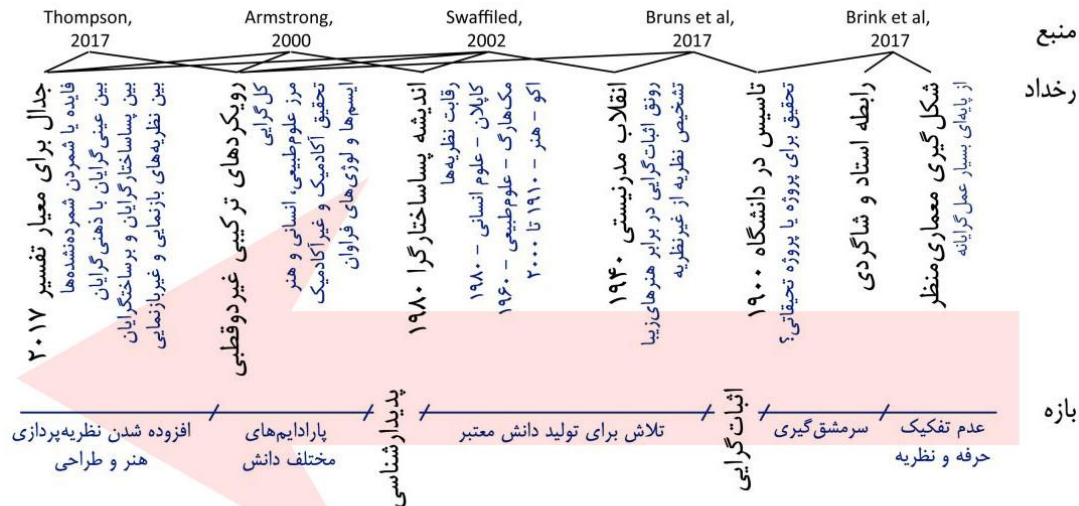 منبع
Brink et al,
2017
Bruns et al,
2017
Swaffiled,
2002
Armstrong,
2000
Thompson,
2017
رخداد
شکل‌گیری معماری‌منظر
از پایه‌ای بسیار عمل‌گرایانه
رابطه استاد و شاگردی
تاسیس در دانشگاه ۱۹۰۰
تحقیق برای پروژه یا پروژه تحقیقاتی؟
انقلاب مدرنیستی ۱۹۴۰
رونق اثبات‌گرایی در برابر هنرهای‌زیبا
تشخیص نظریه از غیرنظریه
اندیشه پساساختارگرا ۱۹۸۰
رقابت نظریه‌ها
کاپلان - علوم انسانی - ۱۹۸۰
مک‌هارگ - علوم‌طبیعی - ۱۹۶۰
اکو - هنر - ۱۹۱۰ تا ۲۰۰۰
رویکردهای ترکیبی غیردوقطبی
کل‌گرایی
مرز علوم‌طبیعی، انسانی و هنر
تحقیق آکادمیک و غیرآکادمیک
ایسم‌ها و لوژی‌های فراوان
جدال برای معیار تفسیر ۲۰۱۷
فایده یا شمردن شمرده‌نشده‌ها
بین عینی‌گرایان با ذهنی‌گرایان
بین پساساختارگرایان و برساختگرایان
بین نظریه‌های بازنمایی و غیربازنمایی
بازه
عدم تفکیک
حرفه و نظریه
سرمشق‌گیری
اثبات‌گرایی
تلاش برای تولید دانش معتبر
پدیدارشناسی
پارادایم‌های
مختلف دانش
افزوده شدن نظریه‌پردازی
هنر و طراحی